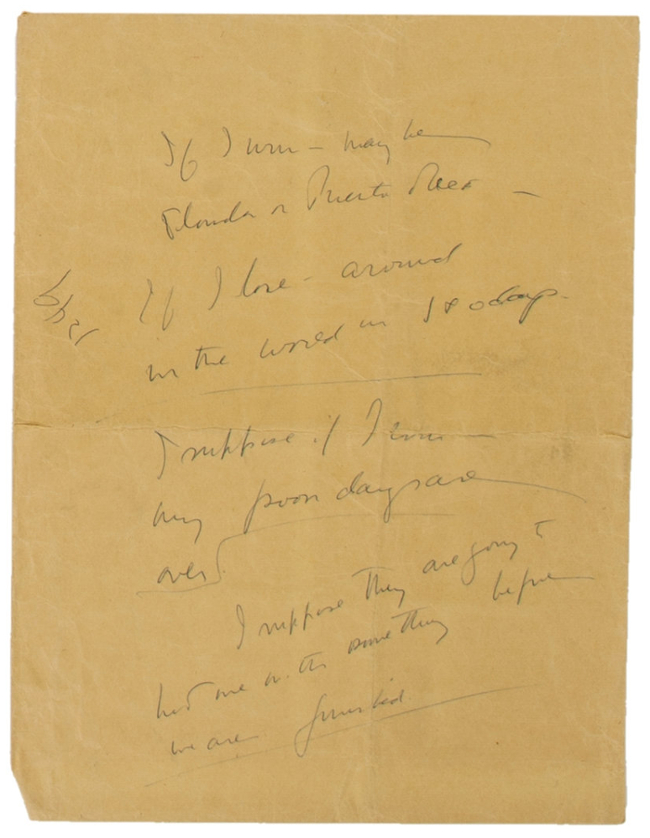 If I win – may be
Florida or Puerto Rico –
If I lose – around
in the world in 180 days.
I suppose if I win –
my poor days are
over
I suppose they are going to
hit me with something before
we are finished.